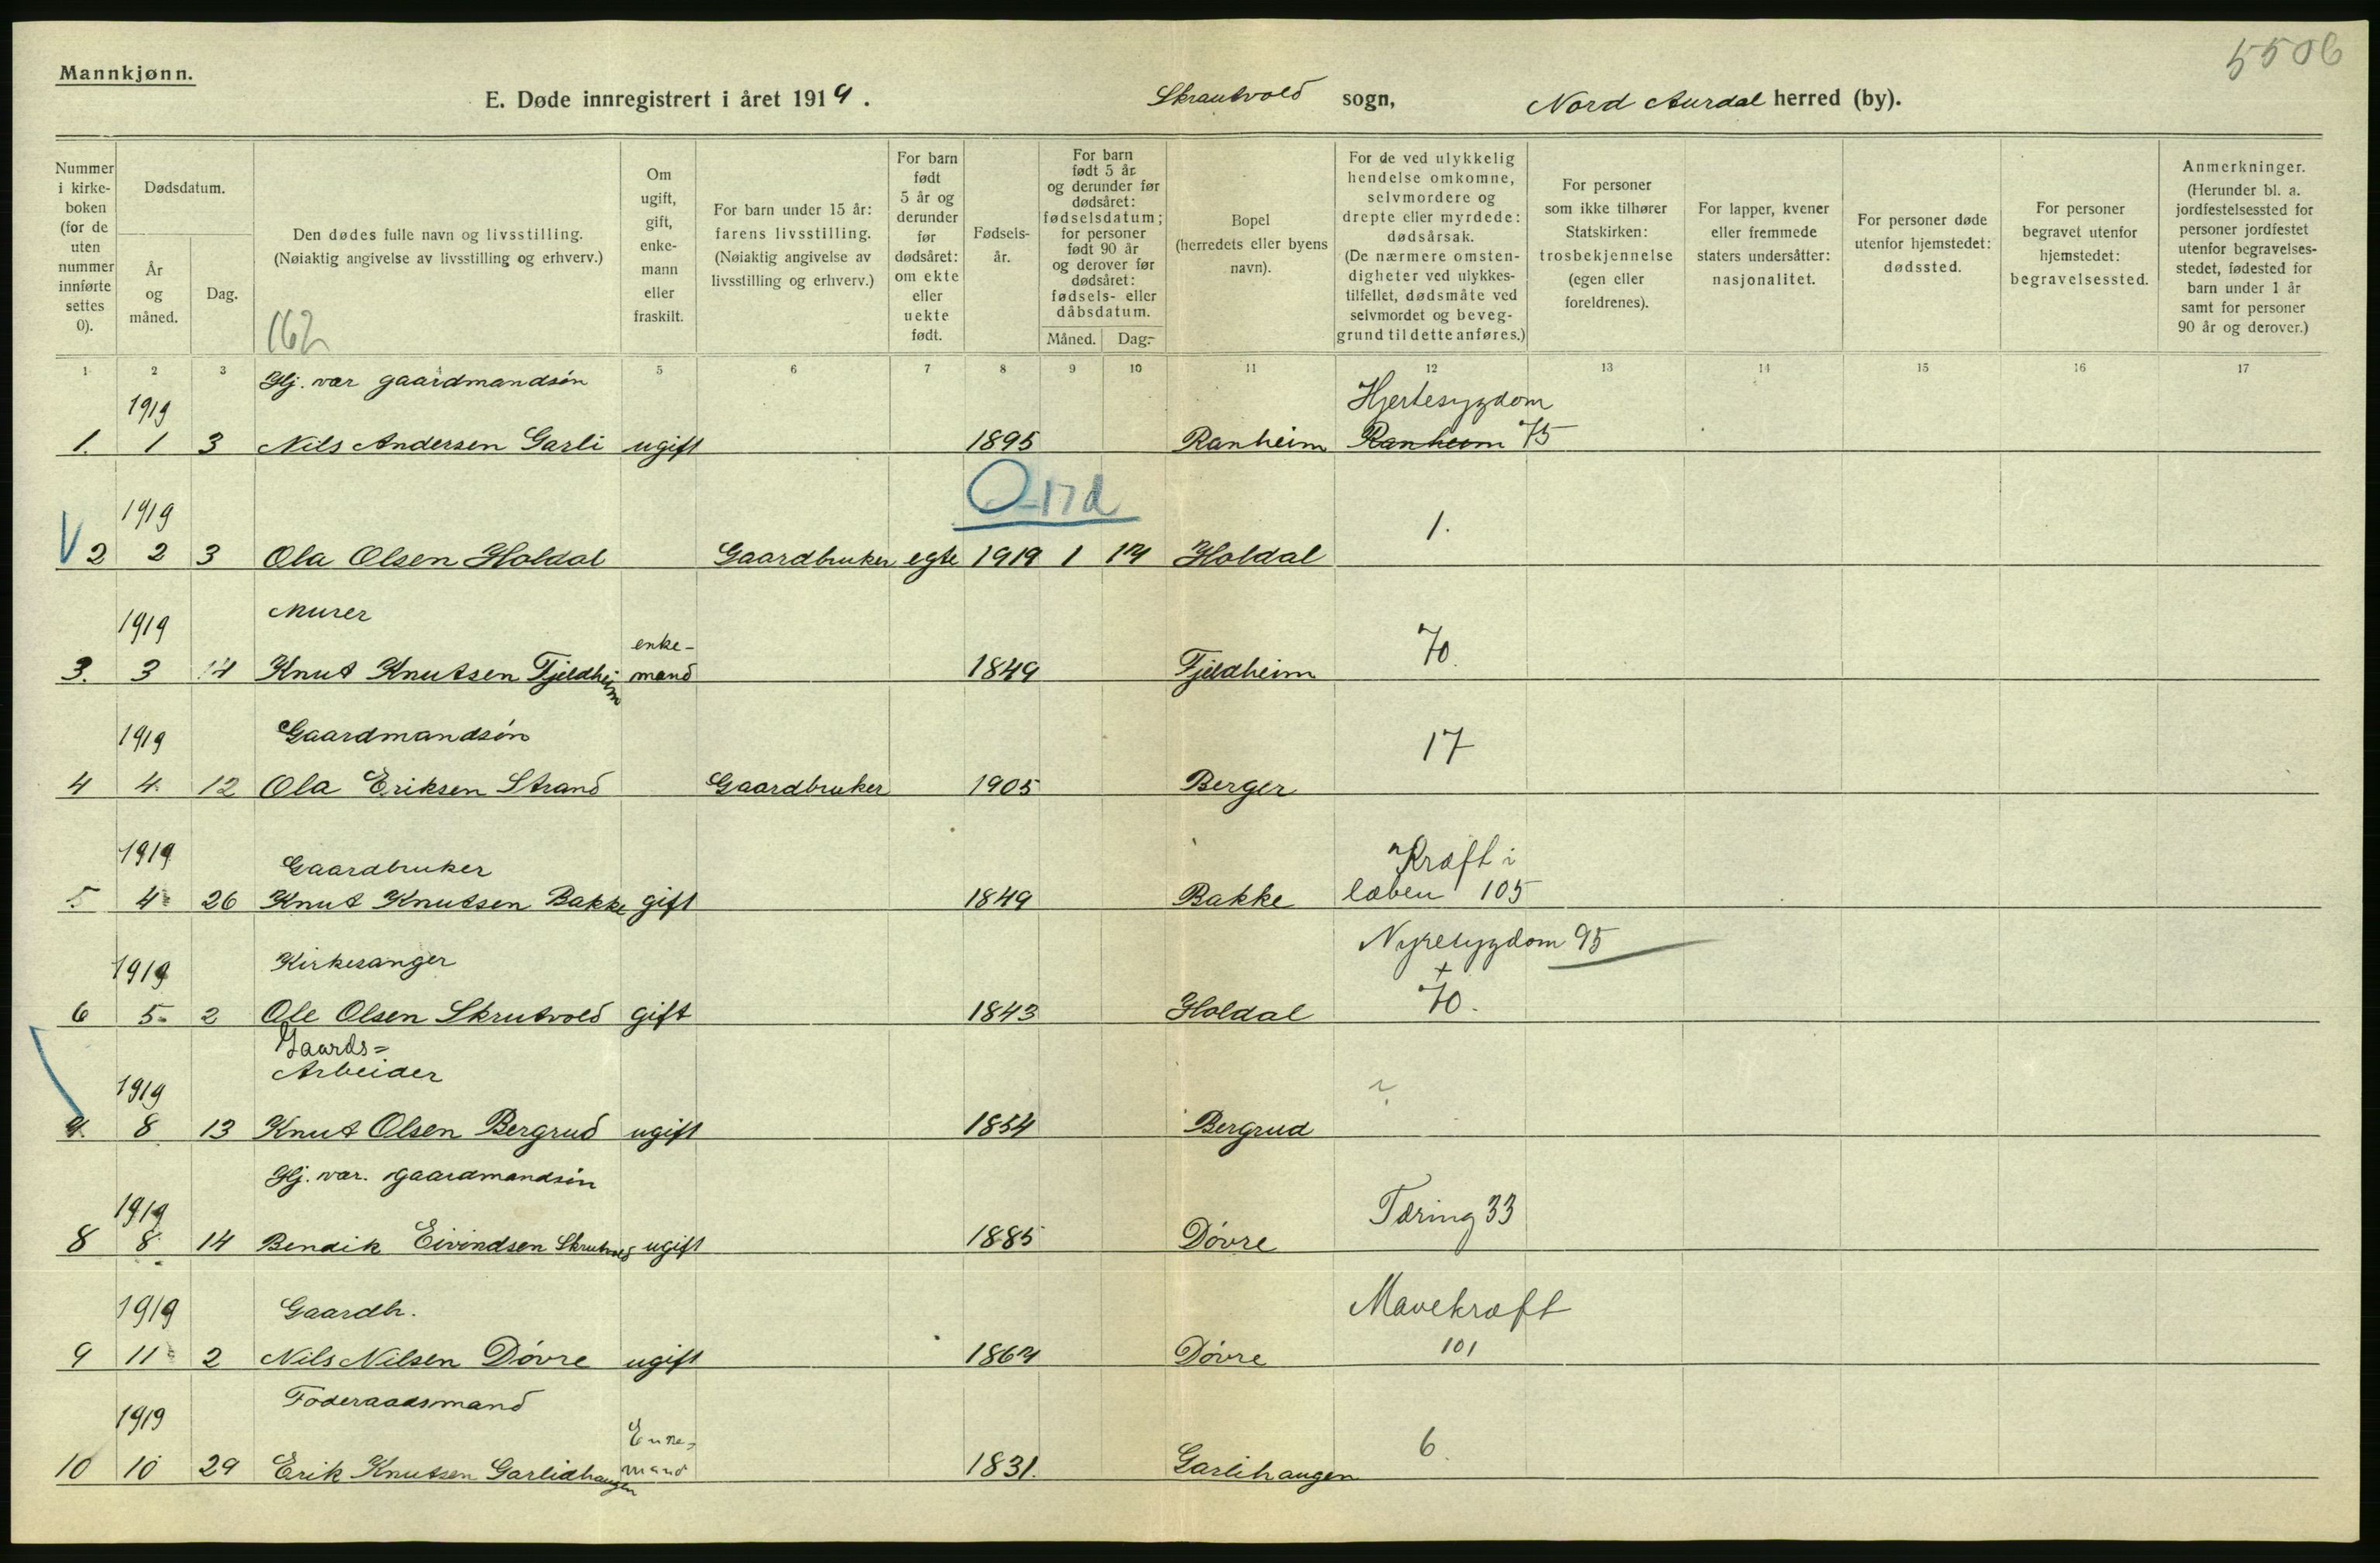 5506
Mannkjønn.
E. Døde innregistrert i året 1919. Skrautvold sogn, Nord Aurdal herred (by).
Nummer i kirkeboken (for de uten nummer innførte settes 0).
Dødsdatum.
År og måned.
Dag.
Den dødes fulle navn og livsstilling.
(Nøiaktig angivelse av livsstilling og erhverv.)
162
Om ugift, gift, enkemann eller fraskilt.
For barn under 15 år: farens livsstilling. (Nøiaktig angivelse av livsstilling og erhverv.)
For barn født 5 år og derunder før dødsåret: om ekte eller uekte født.
Fødselsår.
For barn født 5 år og derunder før dødsåret: fødselsdatum; for personer født 90 år og derover før dødsåret: fødsels- eller dåbsdatum.
Måned. Dag.
Bopel (herredets eller byens navn).
For de ved ulykkelig hendelse omkomne, selvmordere og drepte eller myrdede: dødsårsak. (De nærmere omstendigheter ved ulykkestilfellet, dødsmåte ved selvmordet og beveggrund til dette anføres.)
For personer som ikke tilhører Statskirken: trosbekjennelse (egen eller foreldrenes).
For lapper, kvener eller fremmede staters undersåtter: nasjonalitet.
For personer døde utenfor hjemstedet: dødssted.
For personer begravet utenfor hjemstedet: begravelsessted.
Anmerkninger. (Herunder bl. a. jordfestelsessted for personer jordfestet utenfor begravelsesstedet, fødested for barn under 1 år samt for personer 90 år og derover.)
1 2 3 4 5 6 7 8 9 10 11 12 13 14 15 16 17
Hj. vær gaardmandsøn
1919 Hjertesygdom
1. 1 3 Nils Andersen Garli ugift 1895 Ranheim Ranheim 75
0-17d
1919 1.
V 2 2 3 Ola Olsen Holdal Gaardbruker egte 1919 1 17 Holdal
Murer
1919 enke- 70
3. 3 14 Knut Knutsen Fjeldheim mand 1849 Fjeldheim
1919 Gaardmandsøn 17
4 4 12 Ola Eriksen Strand Gaardbruker 1905 Berger
1919 Gaardbruker Kræft i
5. 4 26 Knut Knutsen Bakke gift 1849 Bakke læben 105
Nyresygdom 95
1919 Kirkesanger +
6 5 2 Ole Olsen Skrutvold gift 1843 Holdal 70.
Gaards=
1919 Arbeider ?
7. 8 13 Knut Olsen Bergrud ugift 1854 Bergrud
Hj. vær. gaardmandsøn
1919 Tæring 33
8 8 14 Bendik Eivindsen Skrutvold ugift 1885 Døvre
1919 Gaardb. Mavekræft
9 11 2 Nils Nilsen Døvre ugift 1867 Døvre 101
Føderaadsmand
1919 Enke- 6
10 10 29 Erik Knutsen Garlidhaugen mand 1831. Garlihaugen